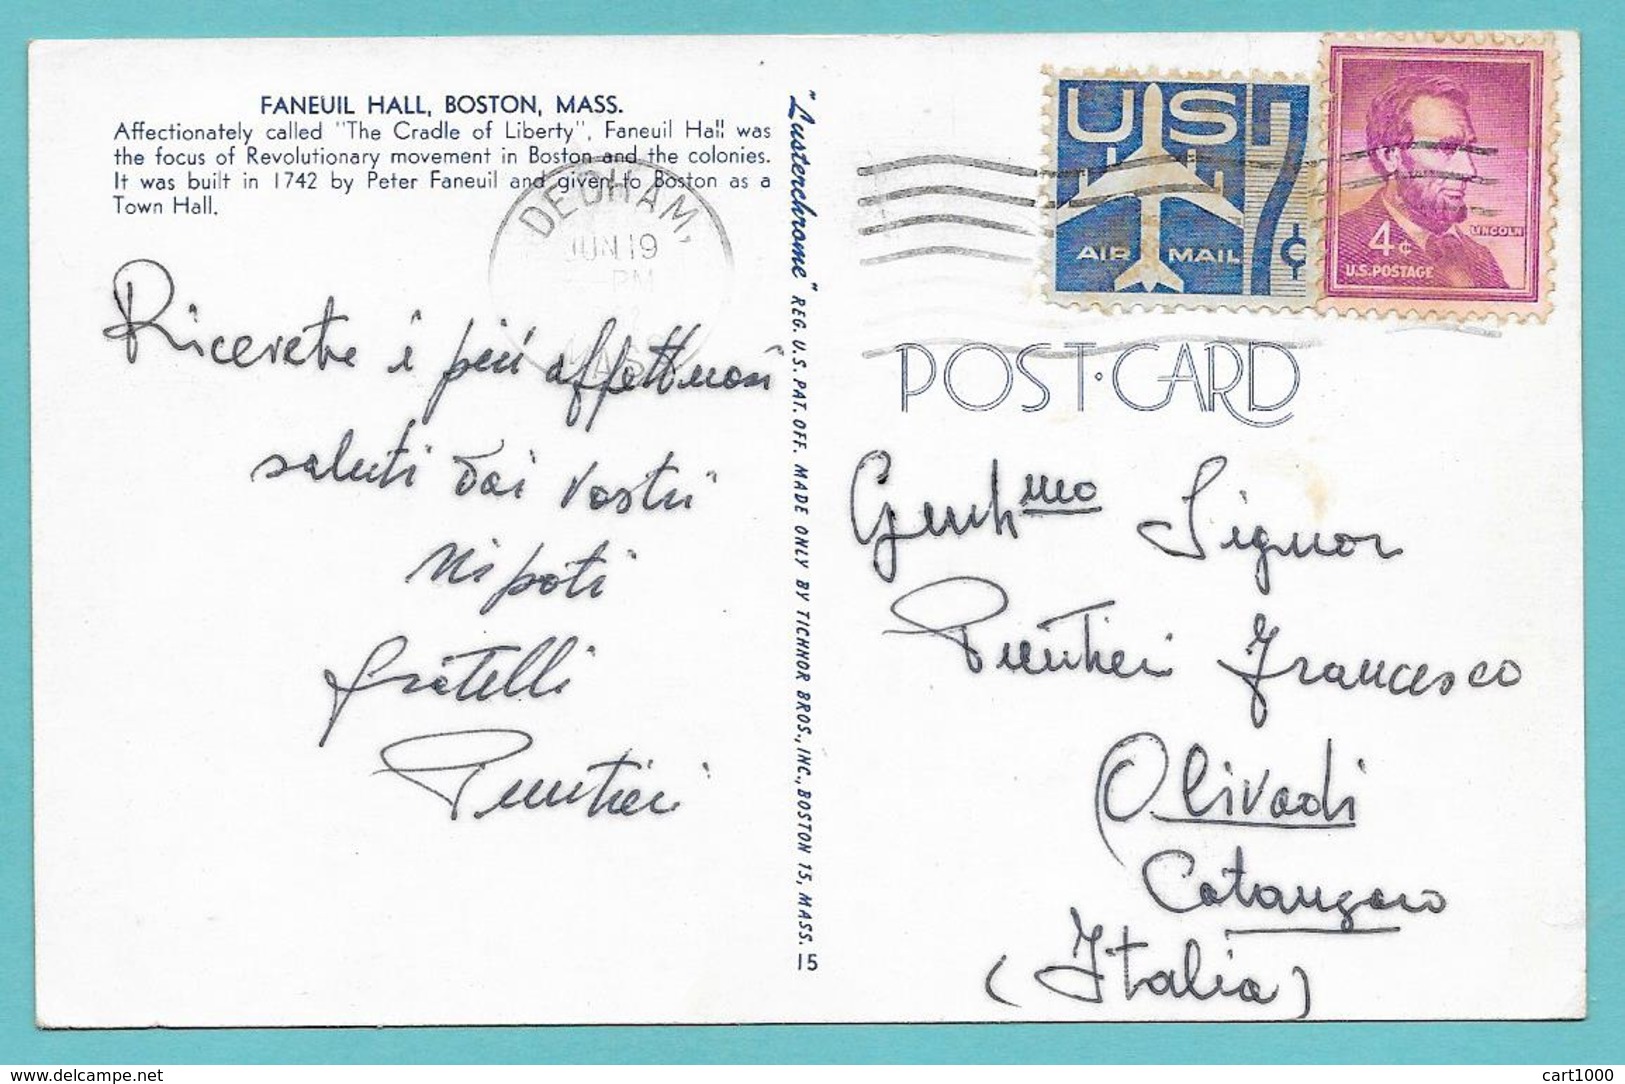 FANEUIL HALL, BOSTON, MASS.
Affectionately called "The Cradle of Liberty", Faneuil Hall was
the focus of Revolutionary movement in Boston and the colonies.
It was built in 1742 by Peter Faneuil and given to Boston as a
Town Hall.
DEDHAM,
JUN 19
PM
MASS
Ricevete i più affettuosi
saluti dai vostri
nipoti
fratelli
"Lusterchrome" REG. U.S. PAT. OFF. MADE ONLY BY TICHNOR BROS., INC., BOSTON 15, MASS. 15
US 7¢
AIR MAIL
4¢
LINCOLN
U.S. POSTAGE
POST CARD
Gentmo Signor
Francesco
Olivadi
Catanzaro
(Italia)
www.delcampe.net
cart1000